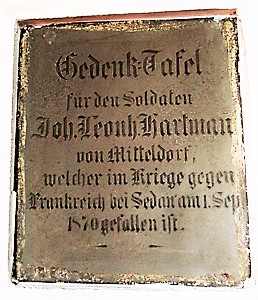 Gedenk-Tafel
für den Soldaten
Joh. Leonh. Hartman
von Mitteldorf,
welcher im Kriege gegen
Frankreich bei Sedan am 1. Sep
1870 gefallen ist.